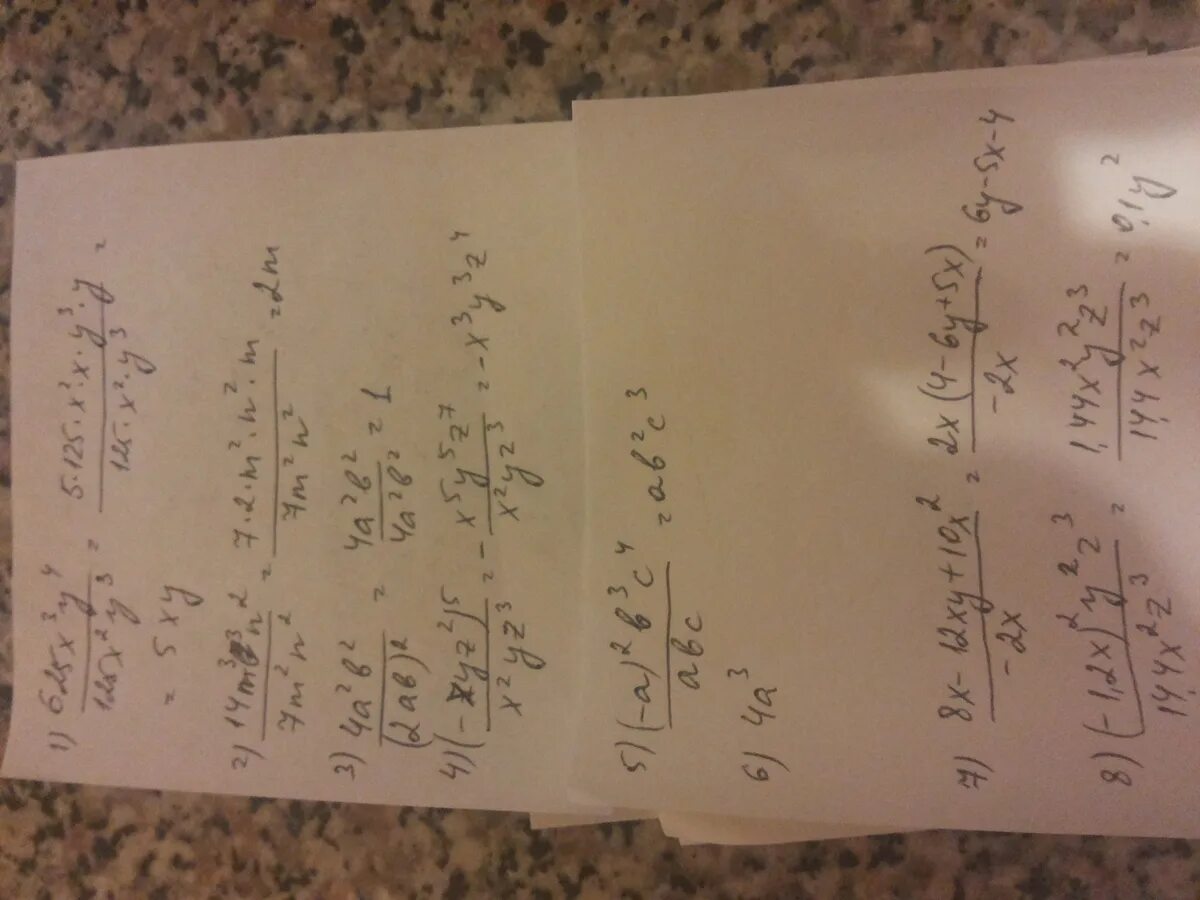 1) 625x³y⁴ / 125x²y³ = 5·125·x²·x·y³·y / 125·x²·y³ =
= 5xy
2) 14m³n² / 7m²n² = 7·2·m²·n²·m / 7m²n² = 2m
3) 4a²b² / (2ab)² = 4a²b² / 4a²b² = 1
4) (-xyz²)⁵ / x²yz³ = - x⁵y⁵z⁷ / x²yz³ = -x³y³z⁴
5) (-a)²b³c⁴ / abc = ab²c³
6) 4a³
7) 8x-12xy+10x² / -2x = 2x(4-6y+5x) / -2x = 6y-5x-4
8) (-1,2x)²y²z³ / 14,4x²z³ = 1,44x²y²z³ / 14,4x²z³ = 0,1y²